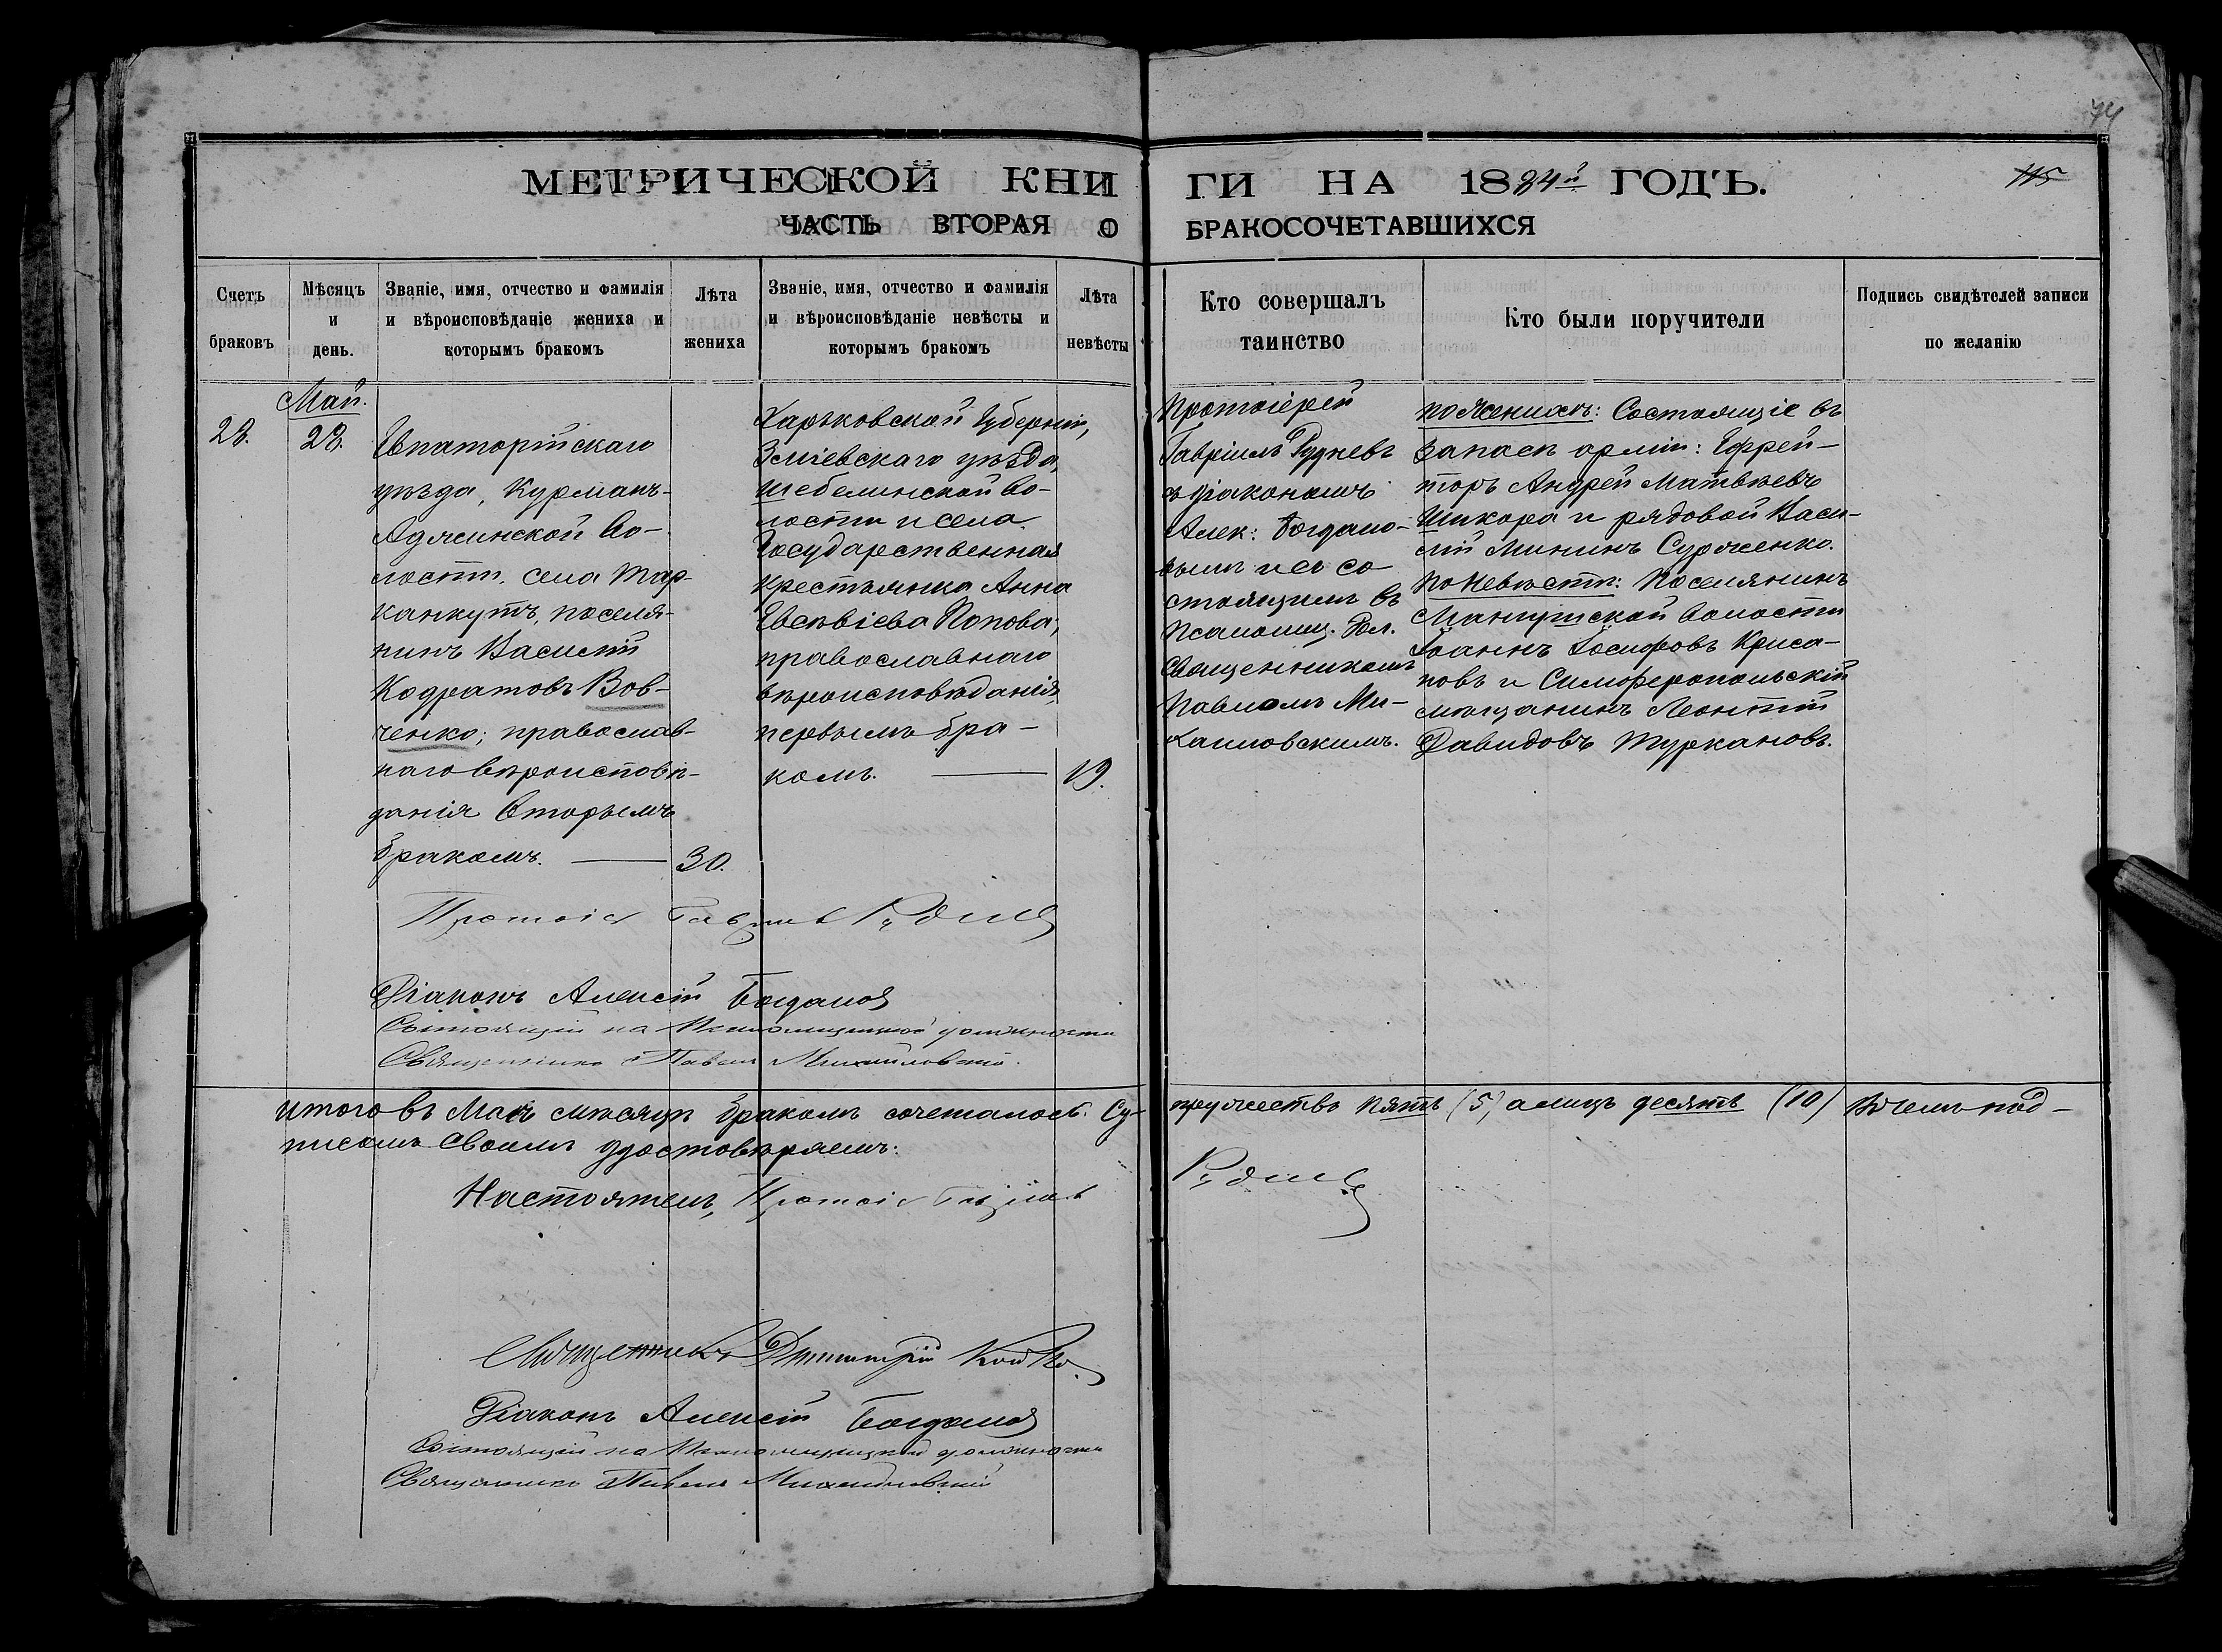 74
МЕТРИЧЕСКОЙ КНИГИ НА 1884й ГОДЪ.
115
ЧАСТЬ ВТОРАЯ О БРАКОСОЧЕТАВШИХСЯ
Счетъ
браковъ
Мѣсяцъ
и
день.
Званіе, имя, отчество и фамилія
и вѣроисповѣданіе жениха и
которымъ бракомъ
Лѣта
жениха
Званіе, имя, отчество и фамилія
и вѣроисповѣданіе невѣсты и
которымъ бракомъ
Лѣта
невѣсты
Кто совершалъ
таинство
Кто были поручители
Подпись свидѣтелей записи
по желанію
28.
Май.
28.
Евпаторійскаго
уѣзда, Курманъ-
Аджинской Во-
лости, села Тар-
ханкутъ, поселя-
нинъ Василій
Кодратовъ Вов-
ченко; православ-
наго вѣроисповѣ-
данія вторымъ
бракомъ. —
30.
Харьковской Губерніи,
Зміевскаго уѣзда,
Шебелинской Во-
лости и села
Государственная
крестьянка Анна
Евсѣвіева Попова,
православнаго
вѣроисповѣданія,
первымъ бра-
комъ. —
19.
Протоіерей
Гавріилъ Рудневъ
съ діакономъ
Алек: Богдано-
вымъ и съ со-
стоящимъ въ
Псаломщ. дол.
Священникомъ
Павломъ Ми-
хайловскимъ.
по женихѣ: Состоящіе въ
запасѣ арміи: Ефрей-
торъ Андрей Матвѣевъ
Шикора и рядовой Васи-
лій Мининъ Сурженко.
по невѣстѣ: поселянинъ
Мангушской волости
Іоаннъ Іосифовъ Криса-
новъ и Симферопольскій
мѣщанинъ Леонтій
Давидовъ Туркановъ.
Протоіе Гавріилъ Рудневъ
Діаконъ Алексій Богдановъ
Состоящій на Псаломщицкой должности
Священникъ Павелъ Михайловскій.
Итого въ Маѣ мѣсяцѣ бракомъ сочеталось: Су-
пружествъ пять (5) а лицъ десять (10) въ чемъ под-
писомъ своимъ удостовѣряемъ:
Настоятель, Протоіе Гавріилъ Рудневъ
Священникъ Димитрій Койко.
Діаконъ Алексій Богдановъ
Состоящій на Псаломщицкой должности
Священникъ Павелъ Михайловскій